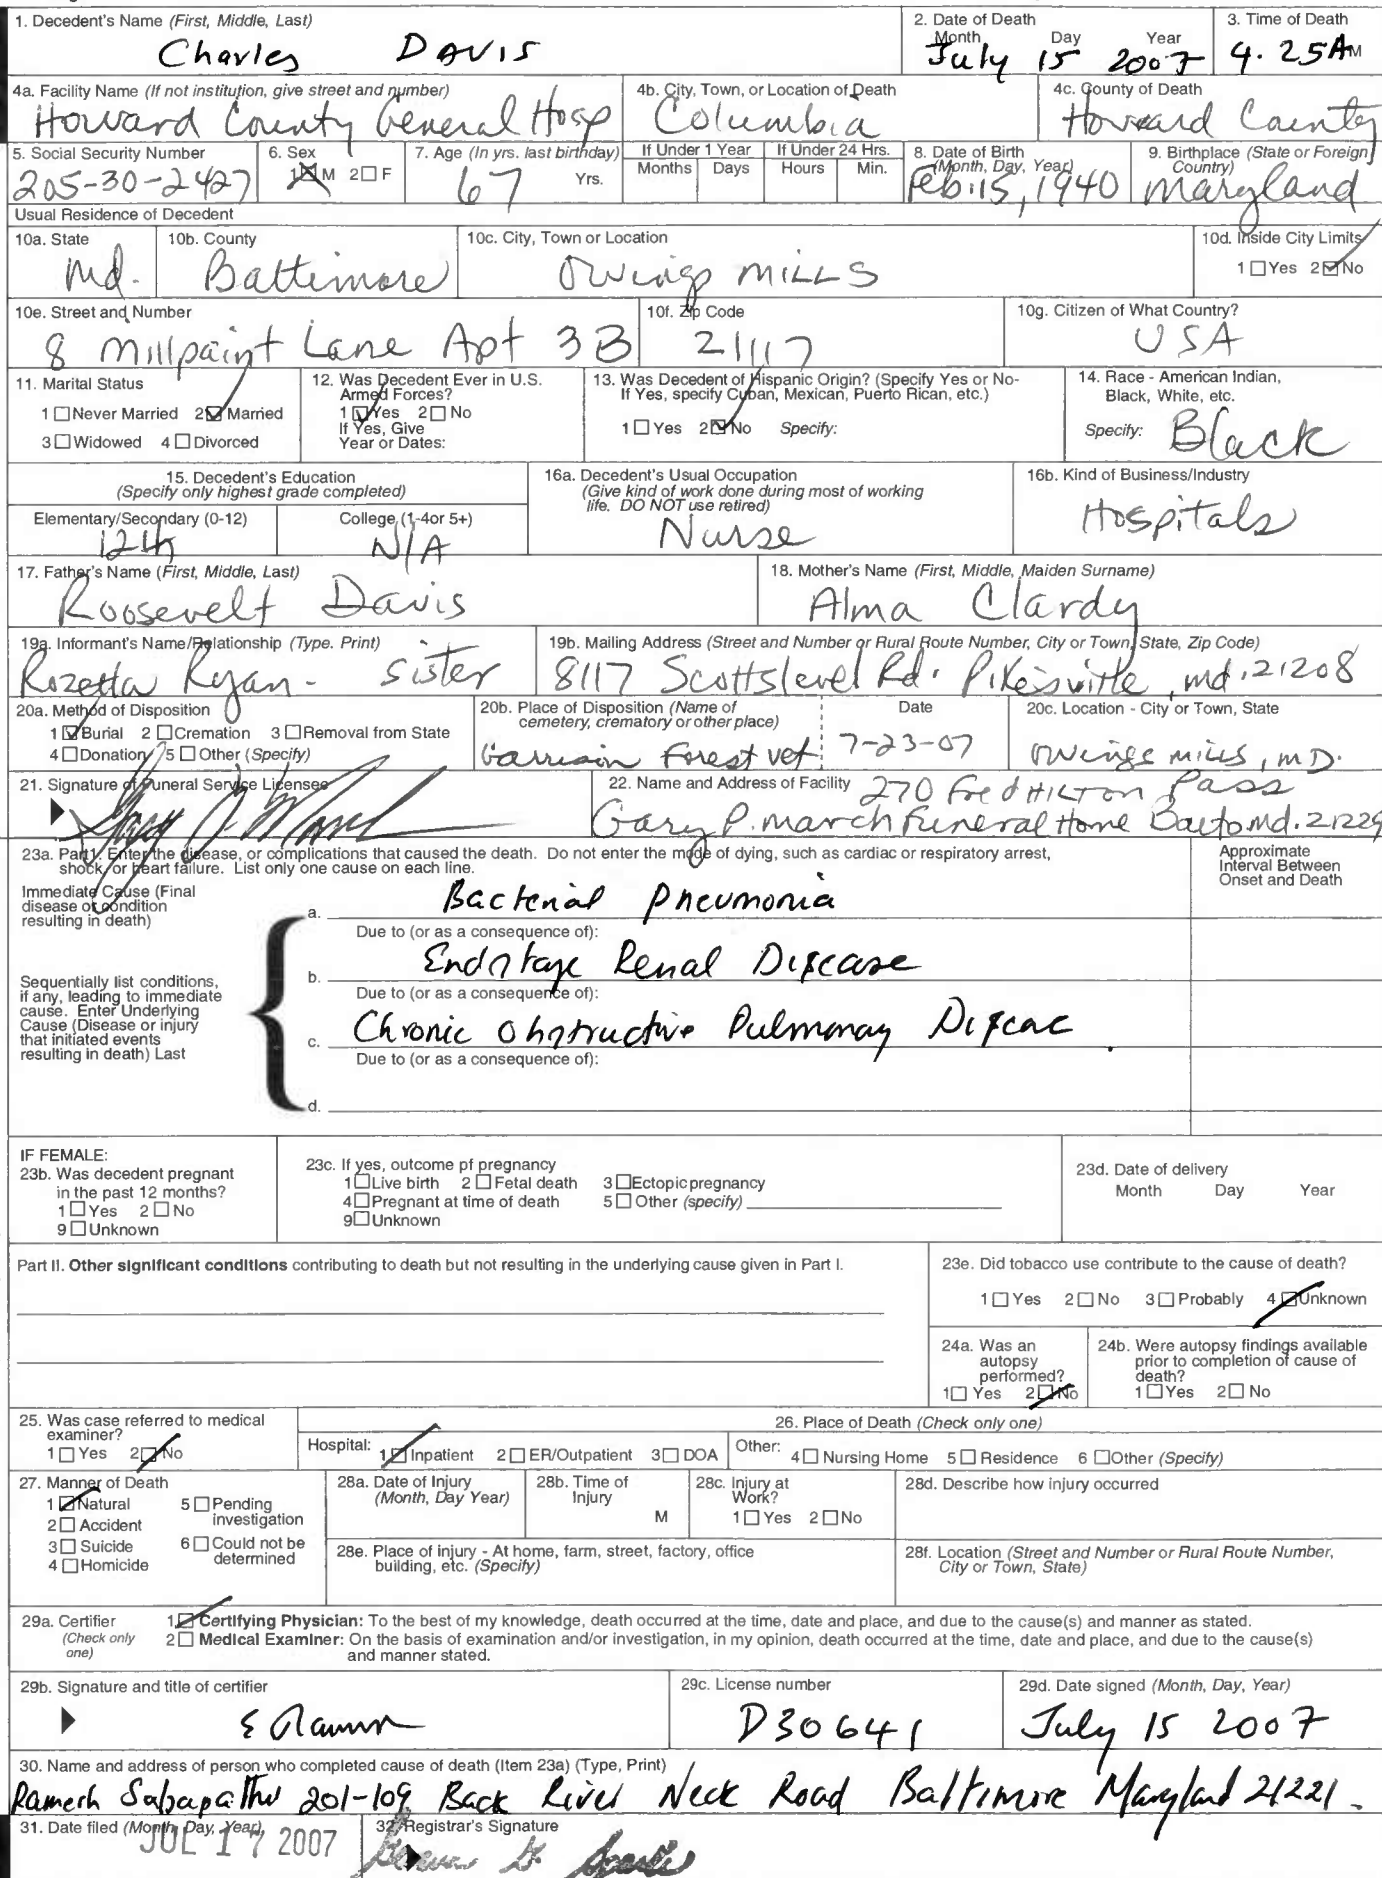 1. Decedent's Name (First, Middle, Last)
Charles DAVIS
2. Date of Death
Month Day Year
July 15 2007
3. Time of Death
4.25AM
4a. Facility Name (If not institution, give street and number)
Howard County General Hosp
4b. City, Town, or Location of Death
Columbia
4c. County of Death
Howard County
5. Social Security Number
205-30-2427
6. Sex
1☒M 2☐F
7. Age (In yrs. last birthday)
67 Yrs.
If Under 1 Year
Months Days
If Under 24 Hrs.
Hours Min.
8. Date of Birth
(Month, Day, Year)
Feb. 15, 1940
9. Birthplace (State or Foreign
Country)
Maryland
Usual Residence of Decedent
10a. State
Md.
10b. County
Baltimore
10c. City, Town or Location
Owings MILLS
10d. Inside City Limits
1☐Yes 2☑No
10e. Street and Number
8 Millpaint Lane Apt 3B
10f. Zip Code
21117
10g. Citizen of What Country?
USA
11. Marital Status
1☐Never Married 2☑Married
3☐Widowed 4☐Divorced
12. Was Decedent Ever in U.S.
Armed Forces?
1☑Yes 2☐No
If Yes, Give
Year or Dates:
13. Was Decedent of Hispanic Origin? (Specify Yes or No-
If Yes, specify Cuban, Mexican, Puerto Rican, etc.)
1☐Yes 2☑No Specify:
14. Race - American Indian,
Black, White, etc.
Specify: Black
15. Decedent's Education
(Specify only highest grade completed)
Elementary/Secondary (0-12)
12th
College (1-4or 5+)
N/A
16a. Decedent's Usual Occupation
(Give kind of work done during most of working
life. DO NOT use retired)
Nurse
16b. Kind of Business/Industry
Hospitals
17. Father's Name (First, Middle, Last)
Roosevelt Davis
18. Mother's Name (First, Middle, Maiden Surname)
Alma Clardy
19a. Informant's Name/Relationship (Type. Print)
Rozetta Ryan - sister
19b. Mailing Address (Street and Number or Rural Route Number, City or Town, State, Zip Code)
8117 Scottslevel Rd. Pikesville, md. 21208
20a. Method of Disposition
1☑Burial 2☐Cremation 3☐Removal from State
4☐Donation 5☐Other (Specify)
20b. Place of Disposition (Name of
cemetery, crematory or other place)
Garrison Forest vet
Date
7-23-07
20c. Location - City or Town, State
Owings mills, MD.
21. Signature of Funeral Service Licensee
22. Name and Address of Facility 270 Fred HILTON Pass
Gary P. march Funeral Home Balto md. 21229
23a. Part1. Enter the disease, or complications that caused the death. Do not enter the mode of dying, such as cardiac or respiratory arrest,
shock, or heart failure. List only one cause on each line.
Approximate
Interval Between
Onset and Death
Immediate Cause (Final
disease or condition
resulting in death)
a. Bacterial Pneumonia
Due to (or as a consequence of):
Sequentially list conditions,
if any, leading to immediate
cause. Enter Underlying
Cause (Disease or injury
that initiated events
resulting in death) Last
b. Endstage Renal Disease
Due to (or as a consequence of):
c. Chronic Obstructive Pulmonary Diseae
Due to (or as a consequence of):
d.
IF FEMALE:
23b. Was decedent pregnant
in the past 12 months?
1☐Yes 2☐No
9☐Unknown
23c. If yes, outcome pf pregnancy
1☐Live birth 2☐Fetal death 3☐Ectopic pregnancy
4☐Pregnant at time of death 5☐Other (specify)
9☐Unknown
23d. Date of delivery
Month Day Year
Part II. Other significant conditions contributing to death but not resulting in the underlying cause given in Part I.
23e. Did tobacco use contribute to the cause of death?
1☐Yes 2☐No 3☐Probably 4☑Unknown
24a. Was an
autopsy
performed?
1☐Yes 2☑No
24b. Were autopsy findings available
prior to completion of cause of
death?
1☐Yes 2☐No
25. Was case referred to medical
examiner?
1☐Yes 2☑No
26. Place of Death (Check only one)
Hospital: 1☑Inpatient 2☐ER/Outpatient 3☐DOA
Other: 4☐Nursing Home 5☐Residence 6☐Other (Specify)
27. Manner of Death
1☑Natural 5☐Pending
investigation
2☐Accident
3☐Suicide 6☐Could not be
determined
4☐Homicide
28a. Date of Injury
(Month, Day Year)
28b. Time of
Injury
M
28c. Injury at
Work?
1☐Yes 2☐No
28d. Describe how injury occurred
28e. Place of injury - At home, farm, street, factory, office
building, etc. (Specify)
28f. Location (Street and Number or Rural Route Number,
City or Town, State)
29a. Certifier
(Check only
one)
1☑Certifying Physician: To the best of my knowledge, death occurred at the time, date and place, and due to the cause(s) and manner as stated.
2☐Medical Examiner: On the basis of examination and/or investigation, in my opinion, death occurred at the time, date and place, and due to the cause(s)
and manner stated.
29b. Signature and title of certifier
29c. License number
D30641
29d. Date signed (Month, Day, Year)
July 15 2007
30. Name and address of person who completed cause of death (Item 23a) (Type, Print)
Ramesh Sabapathy 201-109 Back River Neck Road Baltimore Maryland 21221.
31. Date filed (Month, Day, Year)
JUL 17 2007
32. Registrar's Signature